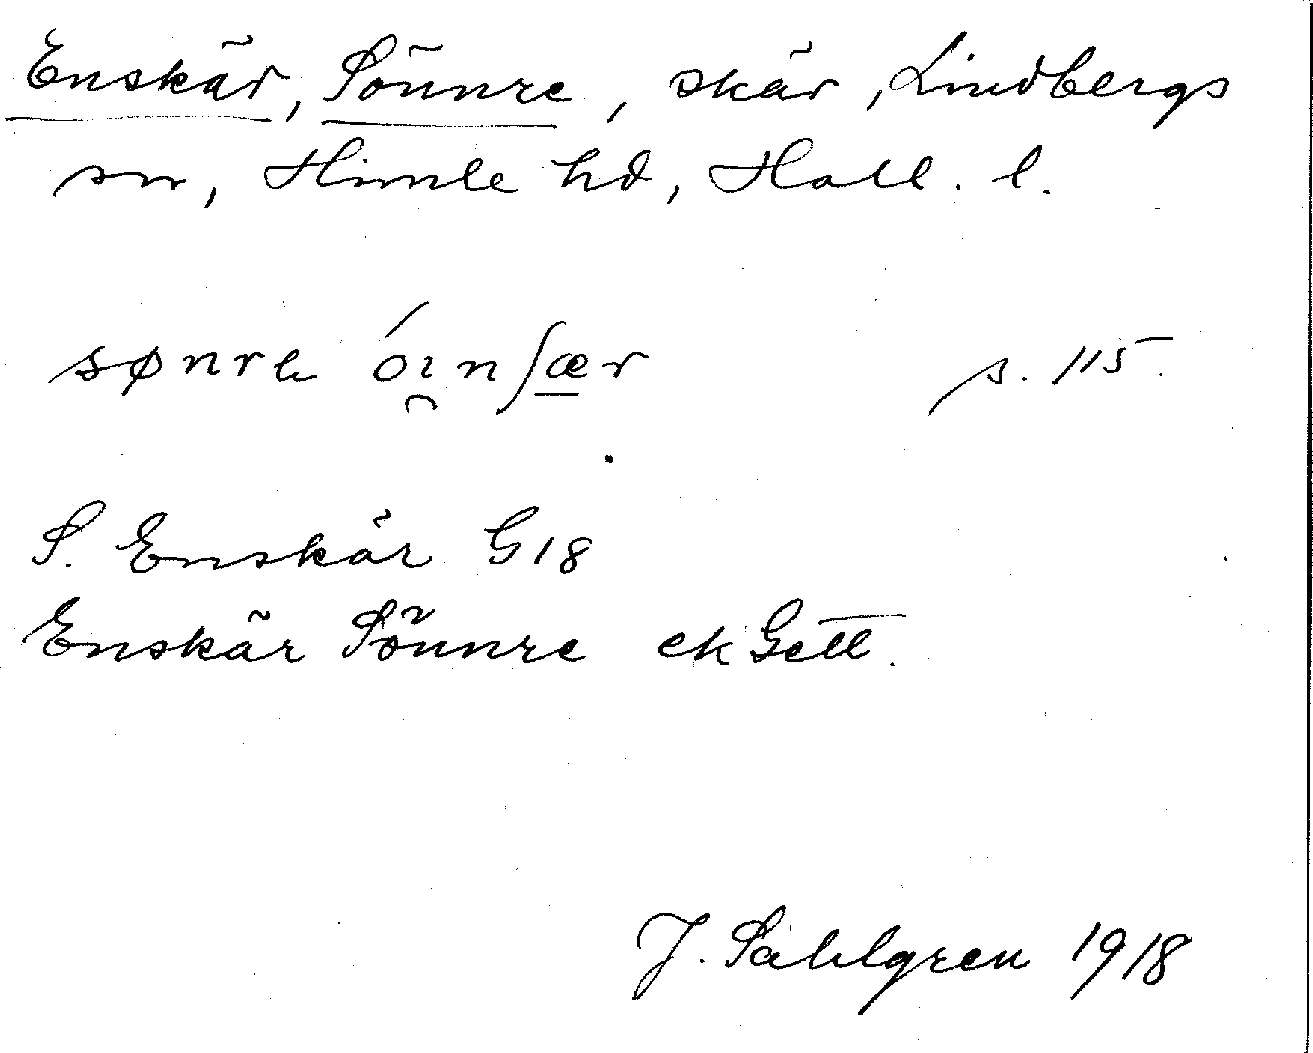 Enskär, Sönnre, skär, Lindbergs
sn, Himle hd, Hall. l.
sønrə óı̯nʃær s. 115.
S. Enskär G18
Enskär Sönnre ek Gell.
J. Sahlgren 1918